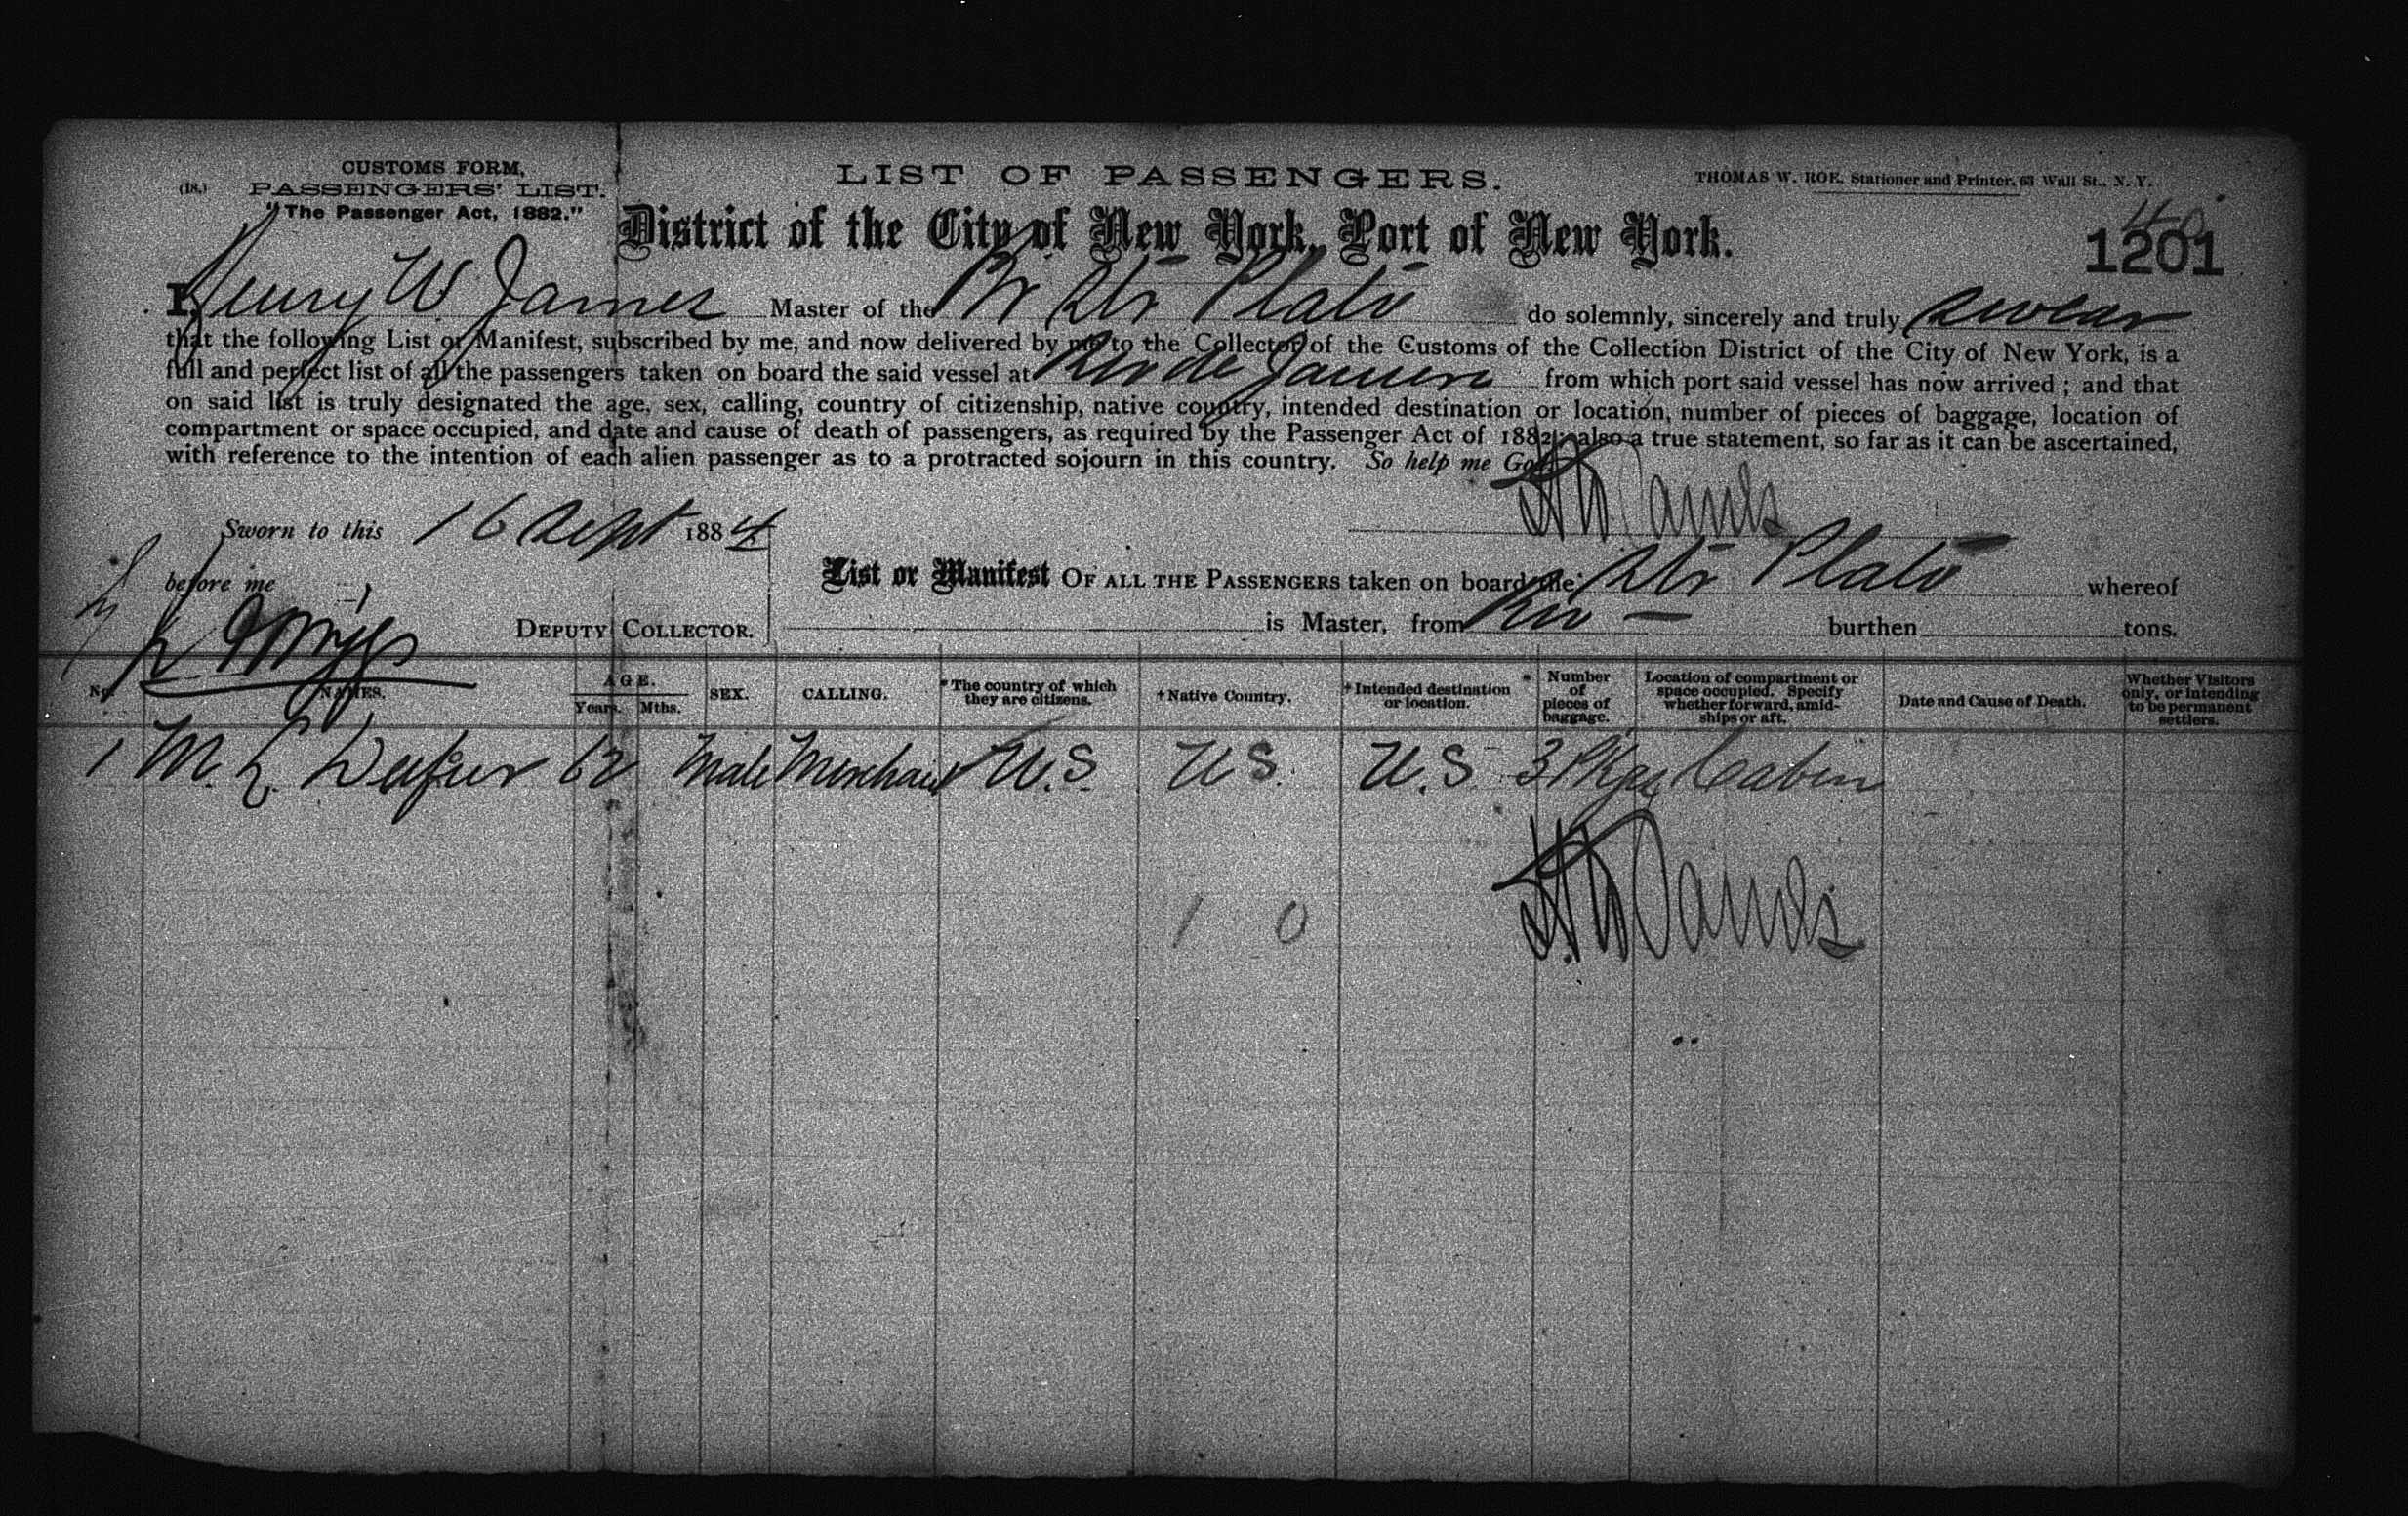 CUSTOMS FORM,
(18.) PASSENGERS' LIST.
"The Passenger Act, 1882."
LIST OF PASSENGERS.
THOMAS W. ROE, Stationer and Printer, 63 Wall St., N. Y.
District of the City of New York, Port of New York.
40
1201
I, Henry W. James Master of the Br Str Plato do solemnly, sincerely and truly swear
that the following List or Manifest, subscribed by me, and now delivered by me to the Collector of the Customs of the Collection District of the City of New York, is a
full and perfect list of all the passengers taken on board the said vessel at Rio de Janeiro from which port said vessel has now arrived; and that
on said list is truly designated the age, sex, calling, country of citizenship, native country, intended destination or location, number of pieces of baggage, location of
compartment or space occupied, and date and cause of death of passengers, as required by the Passenger Act of 1882; also a true statement, so far as it can be ascertained,
with reference to the intention of each alien passenger as to a protracted sojourn in this country. So help me God.
H W James
Sworn to this 16 Sept 1884
before me
DEPUTY COLLECTOR.
List or Manifest OF ALL THE PASSENGERS taken on board the Str Plato whereof
is Master, from Rio — burthen tons.
No. NAMES. AGE. Years. Mths. SEX. CALLING. *The country of which they are citizens. †Native Country. †Intended destination or location. * Number of pieces of baggage. Location of compartment or space occupied. Specify whether forward, amidships or aft. Date and Cause of Death. Whether Visitors only, or intending to be permanent settlers.
1 M. L. 62 Male Merchant U.S. U S. U.S 3 Pkgs Cabin
H. W James
1 0